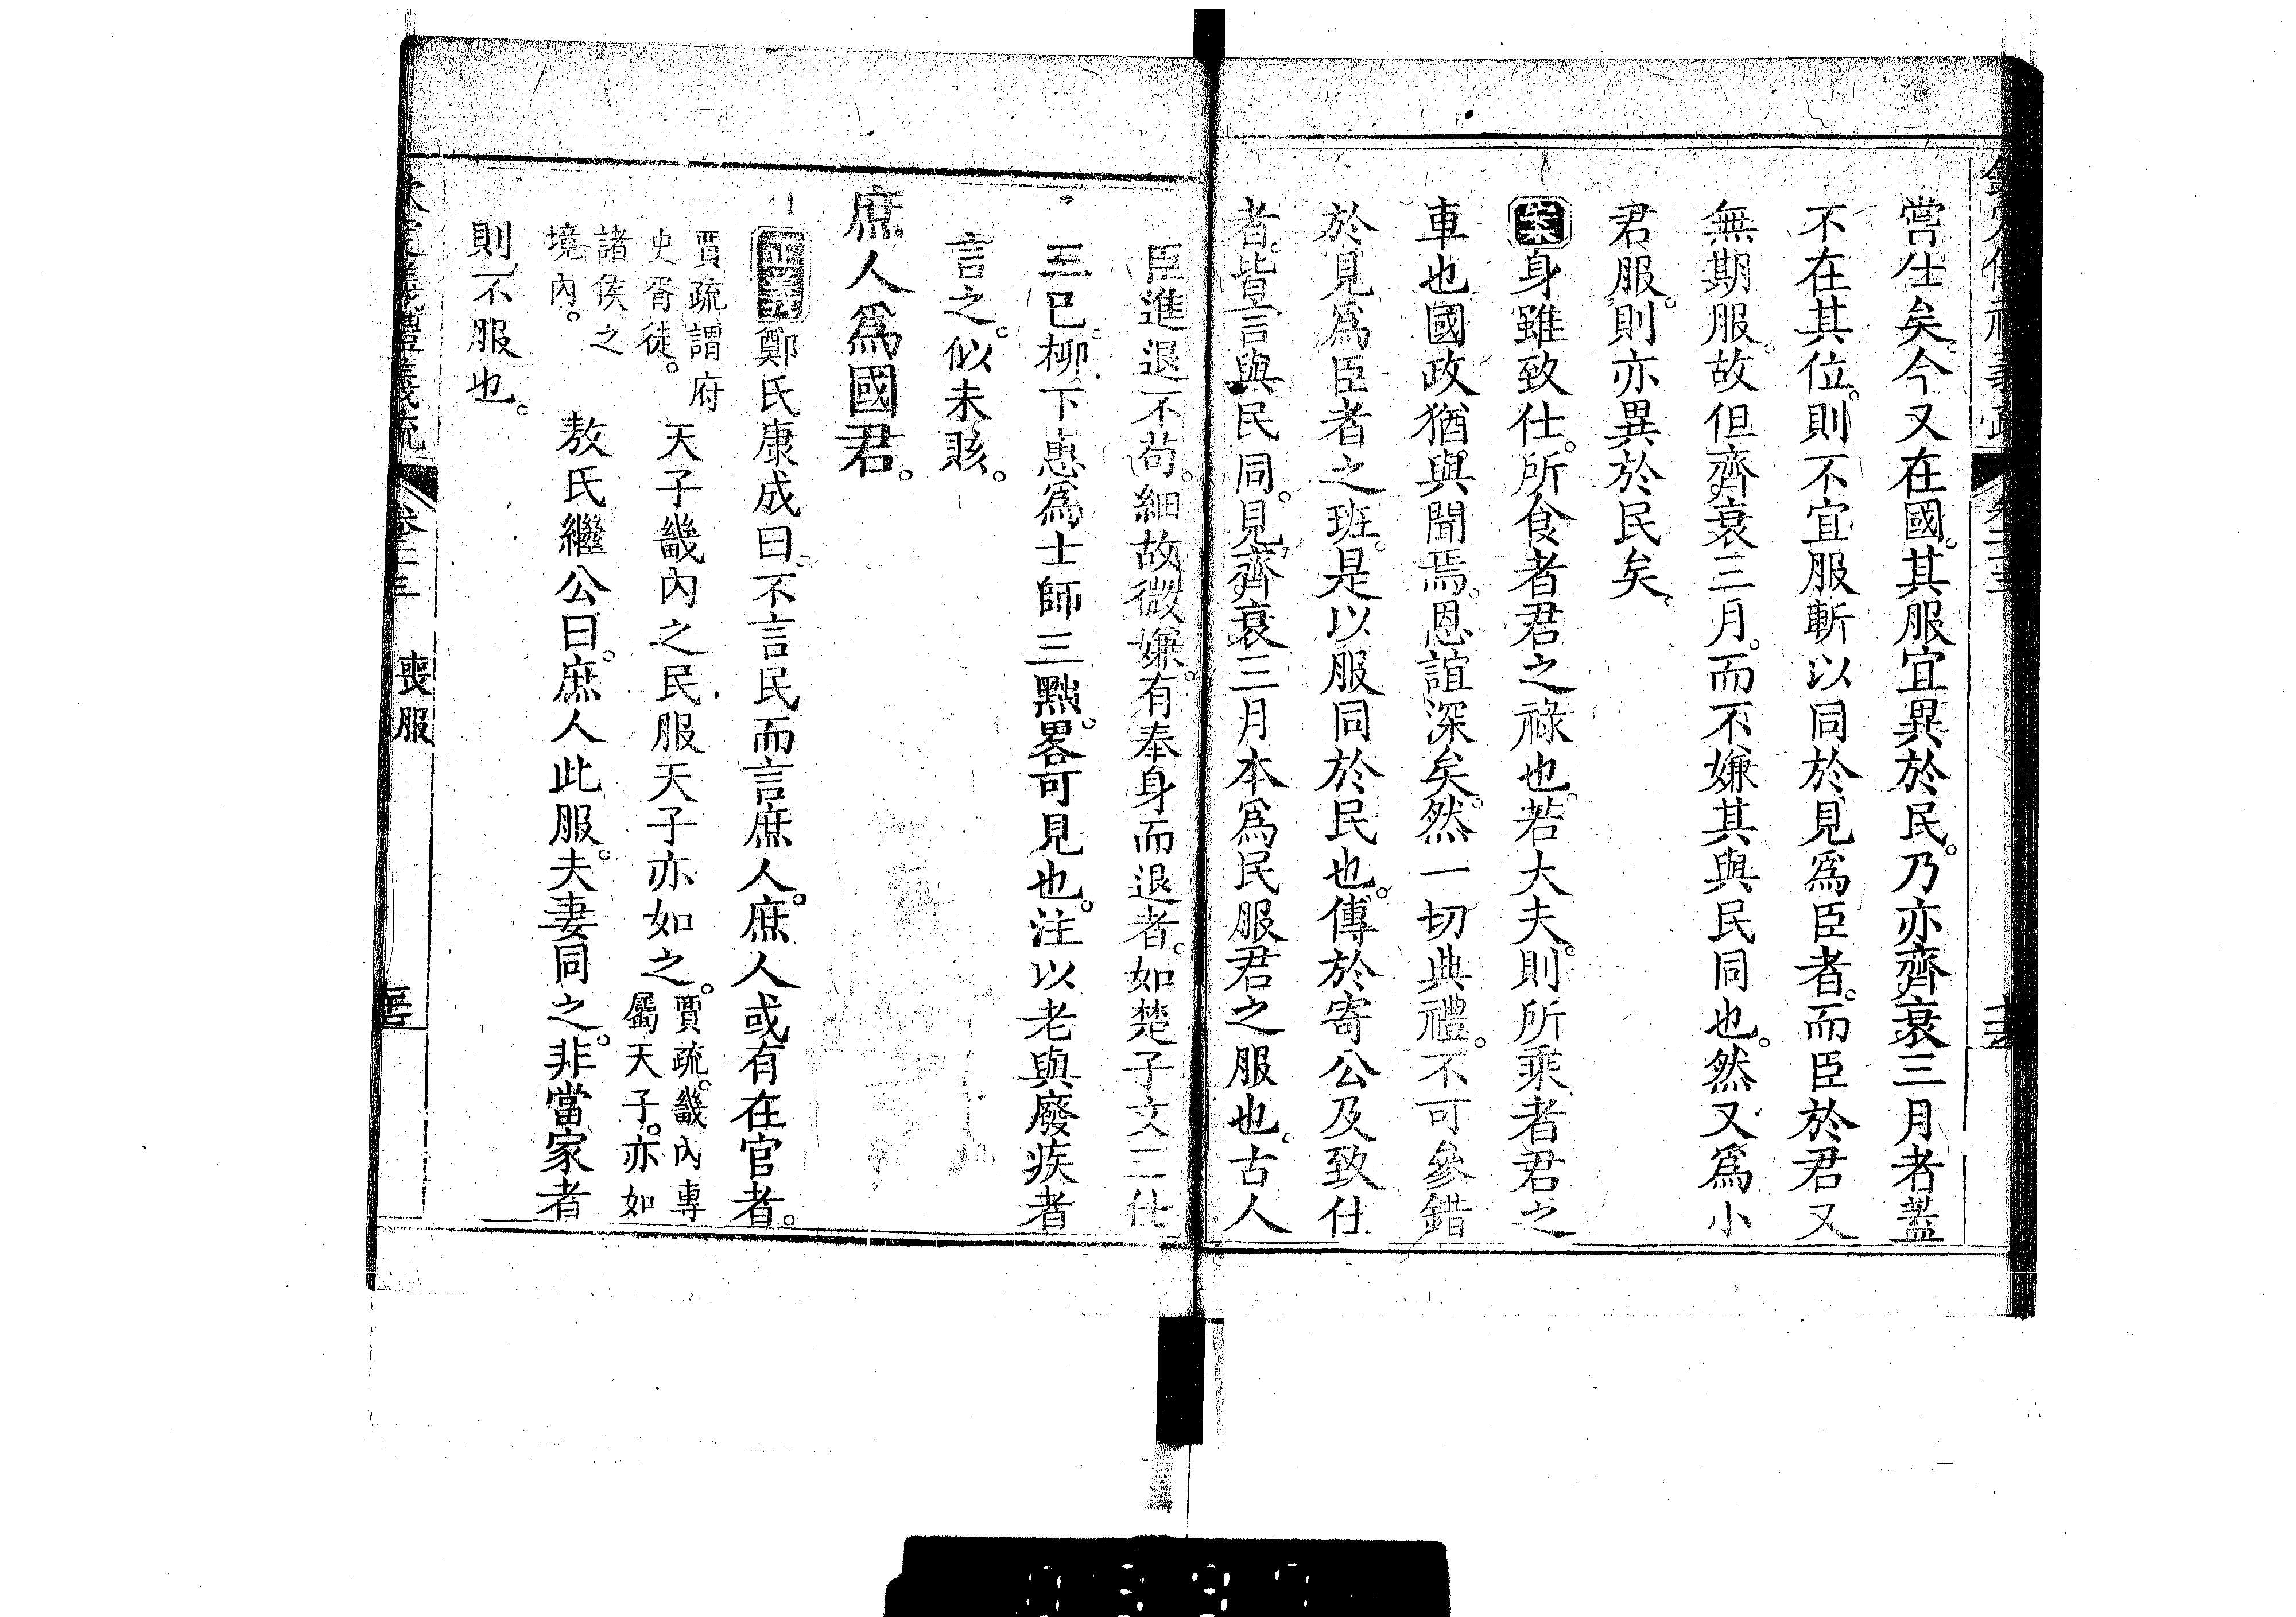 嘗仕矣。今又在國。其服宜異於民。乃亦齊衰三月者。蓋
不在其位。則不宜服斬以同於見爲臣者。而臣於君又
無期服。故但齊衰三月。而不嫌其與民同也。然又爲小
君服。則亦異於民矣。
案身雖致仕。所食者君之祿也。若大夫。則所乘者君之
車也國政猶與聞焉。恩誼深矣。然一切典禮。不可參錯
於見爲臣者之班。是以服同於民也。傳於寄公及致仕
者。皆言與民同。見齊衰三月本爲民服君之服也。古人
臣進退不苟。細故微嫌。有奉身而退者。如楚子文二仕
三已。柳下惠爲士師三黜。畧可見也。注以老與廢疾者
言之。似未賅。
庶人爲國君。
正義鄭氏康成曰。不言民而言庶人。庶人或有在官者。
賈疏謂府
史胥徒。
天子畿內之民服天子亦如之。
賈疏。畿內專
屬天子。亦如
諸侯之
境內。
敖氏繼公曰。庶人此服。夫妻同之。非當家者
則不服也。
欽定儀禮義疏 卷二十三 喪服